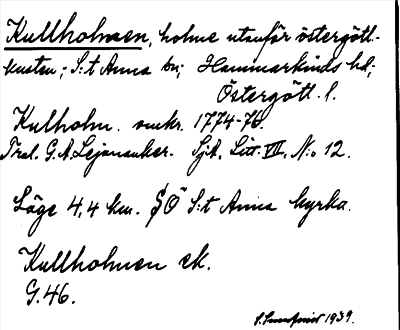 Kullholmen, holme utanför östergötl.-
kusten; S:t Anna sn; Hammarkinds hd;
Östergötl. l.
Kulholm. omkr. 1774-76.
G.A. Lejonanker. Sjk. Litt. VII, N:o 12.
Läge 4,4 km. SÖ S:t Anna kyrka.
Kullholmen ek.
G.46.
1939.